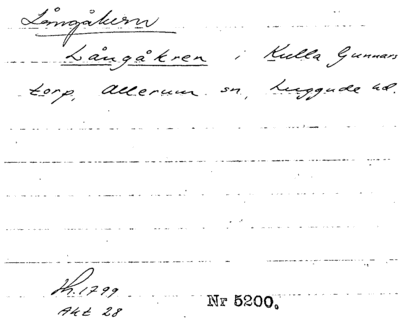 Långåkern
Långåkren i Kulla Gunnars
torp, Allerum sn, Luggude hd.
Sk. 1799
Akt 28
Nr 5200.